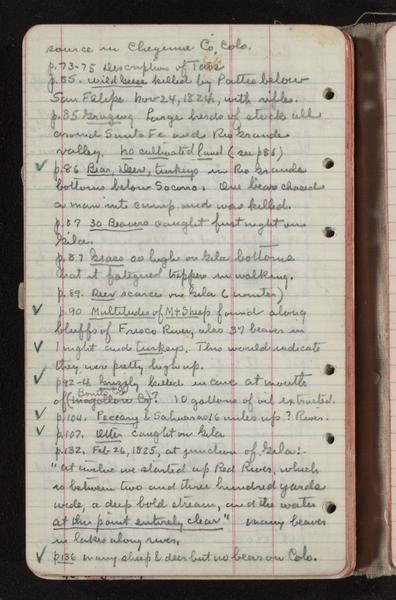 source in Cheyenne Co, Colo.
p.73-75 Description of Taos
p.85. wild geese killed by Pattie below
San Felipe Nov 24, 1824, with rifles.
p.85 Grazing Large herds of stock all
around Santa Fe and Rio Grande
valley. no cultivated land (see p86)
p.86 Bear, Deer, turkeys in Rio Grande
bottoms below Socorro. One bear chased
a man into camp and was killed.
p.87 30 Beavers caught first night on
Gila.
p.87 Grass so high on Gila bottoms
that it fatigued trappers in walking.
p.89. Deer scarce on Gila (winter)
p.90 Multitudes of Mt Sheep found along
bluffs of Fresco River, also 37 beaver in
1 night and turkeys. This would indicate
they were pretty high up.
p.92-4 Grizzly killed in cave at mouth
of (Mogollon Cr)? 10 gallons of oil extracted.
p.104. Peccary & Sahuaros 16 miles up ? River.
p.107. Otter caught on Gila
p.132. Feb 26, 1825, at junction of Gila:-
"at twelve we started up Red River, which
is between two and three hundred yards
wide, a deep bold stream, and the water
at this point entirely clear" many beaver
in lakes along river.
p.136 many sheep & deer but no bear on Colo.